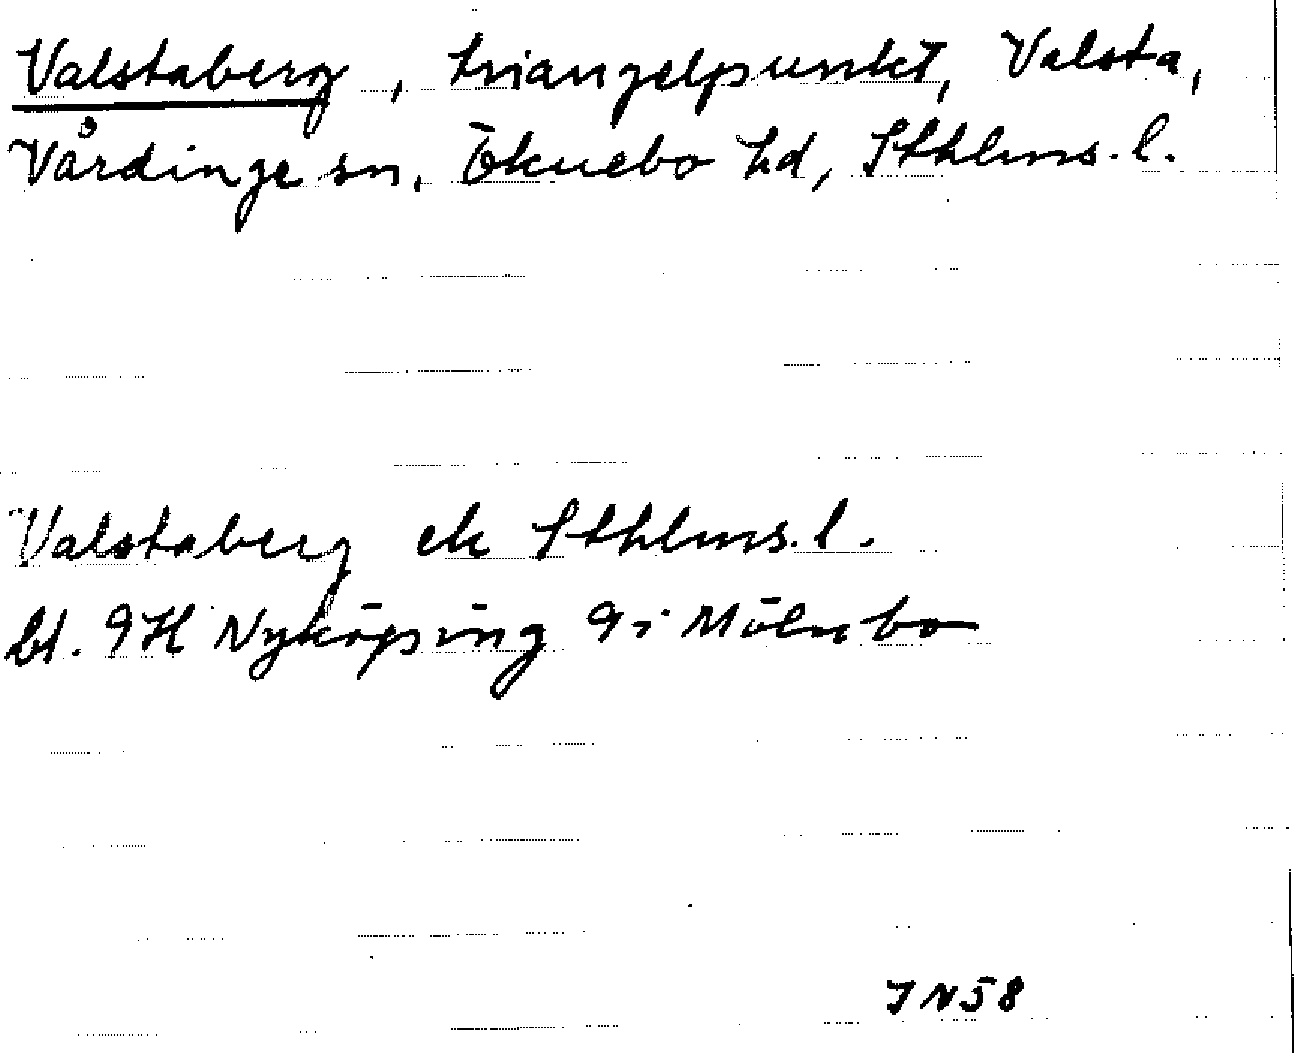 Valstaberg, triangelpunkt, Valsta,
Vårdinge sn, Öknebo hd, Sthlms. l.
Valstaberg ek Sthlms. l.
bl. 9H Nyköping 9i Mölnbo
JN58